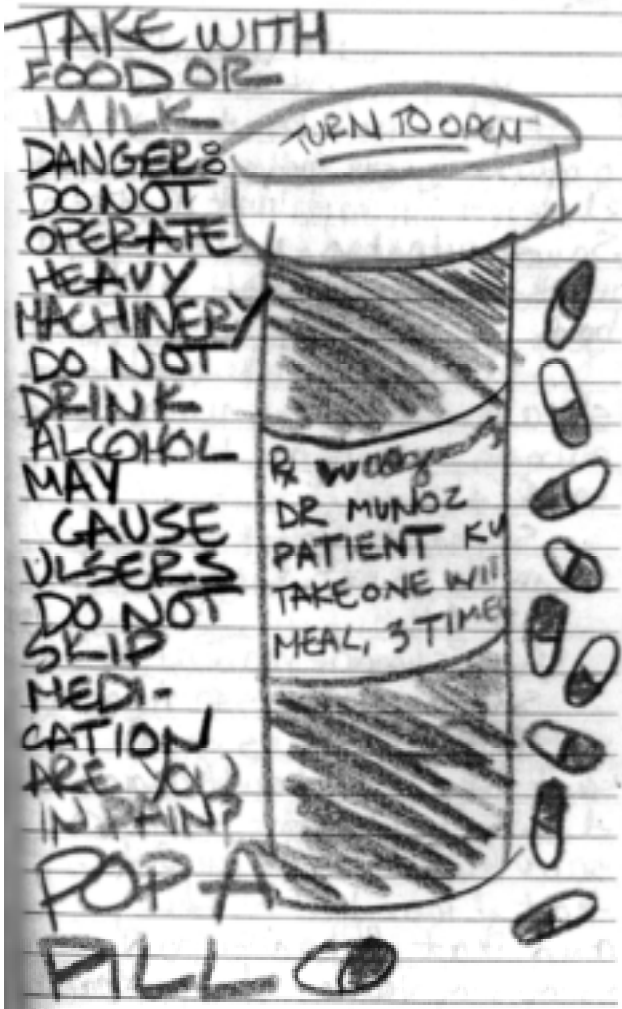 TAKE WITH
FOOD OR
MILK
DANGER:
DO NOT
OPERATE
HEAVY
MACHINERY
DO NOT
DRINK
ALCOHOL
MAY
CAUSE
ULSERS
DO NOT
SKIP
MEDI-
CATION
ARE YOU
IN PAIN?
POP A
PILL
TURN TO OPEN
Rx Walgreens
DR MUNOZ
PATIENT KU
TAKE ONE WIT
MEAL, 3 TIMES